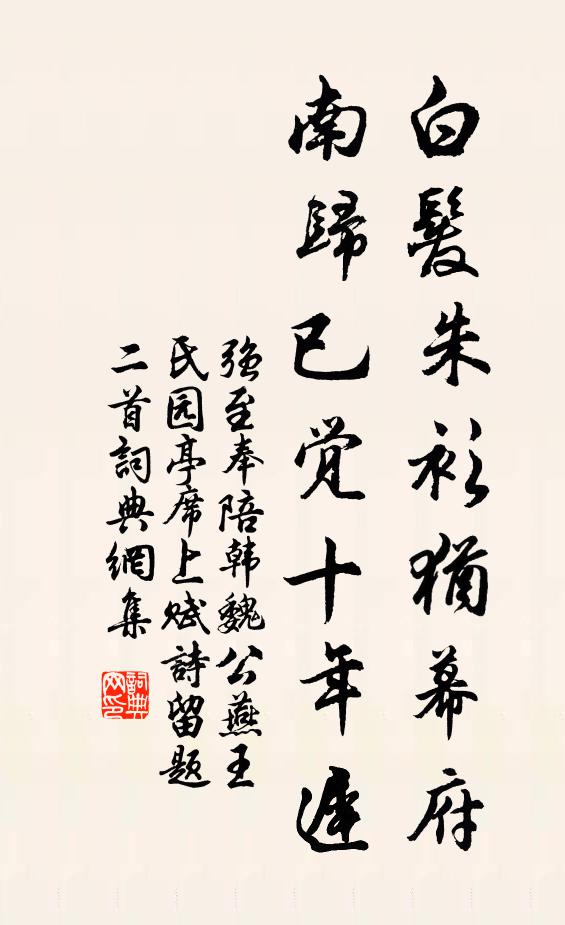 白髮朱衫猶幕府
南歸已觉十年遲
強至奉陪韩魏公燕王
氏园亭席上赋詩留题
二首詞典網集
詞典
网印